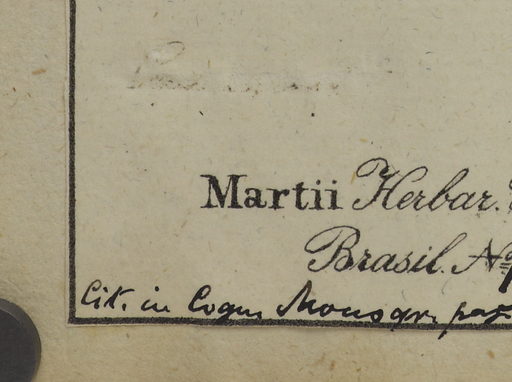 Martii Herbar.
Brasil. No
Cit. in Cogn. Monogr. pag